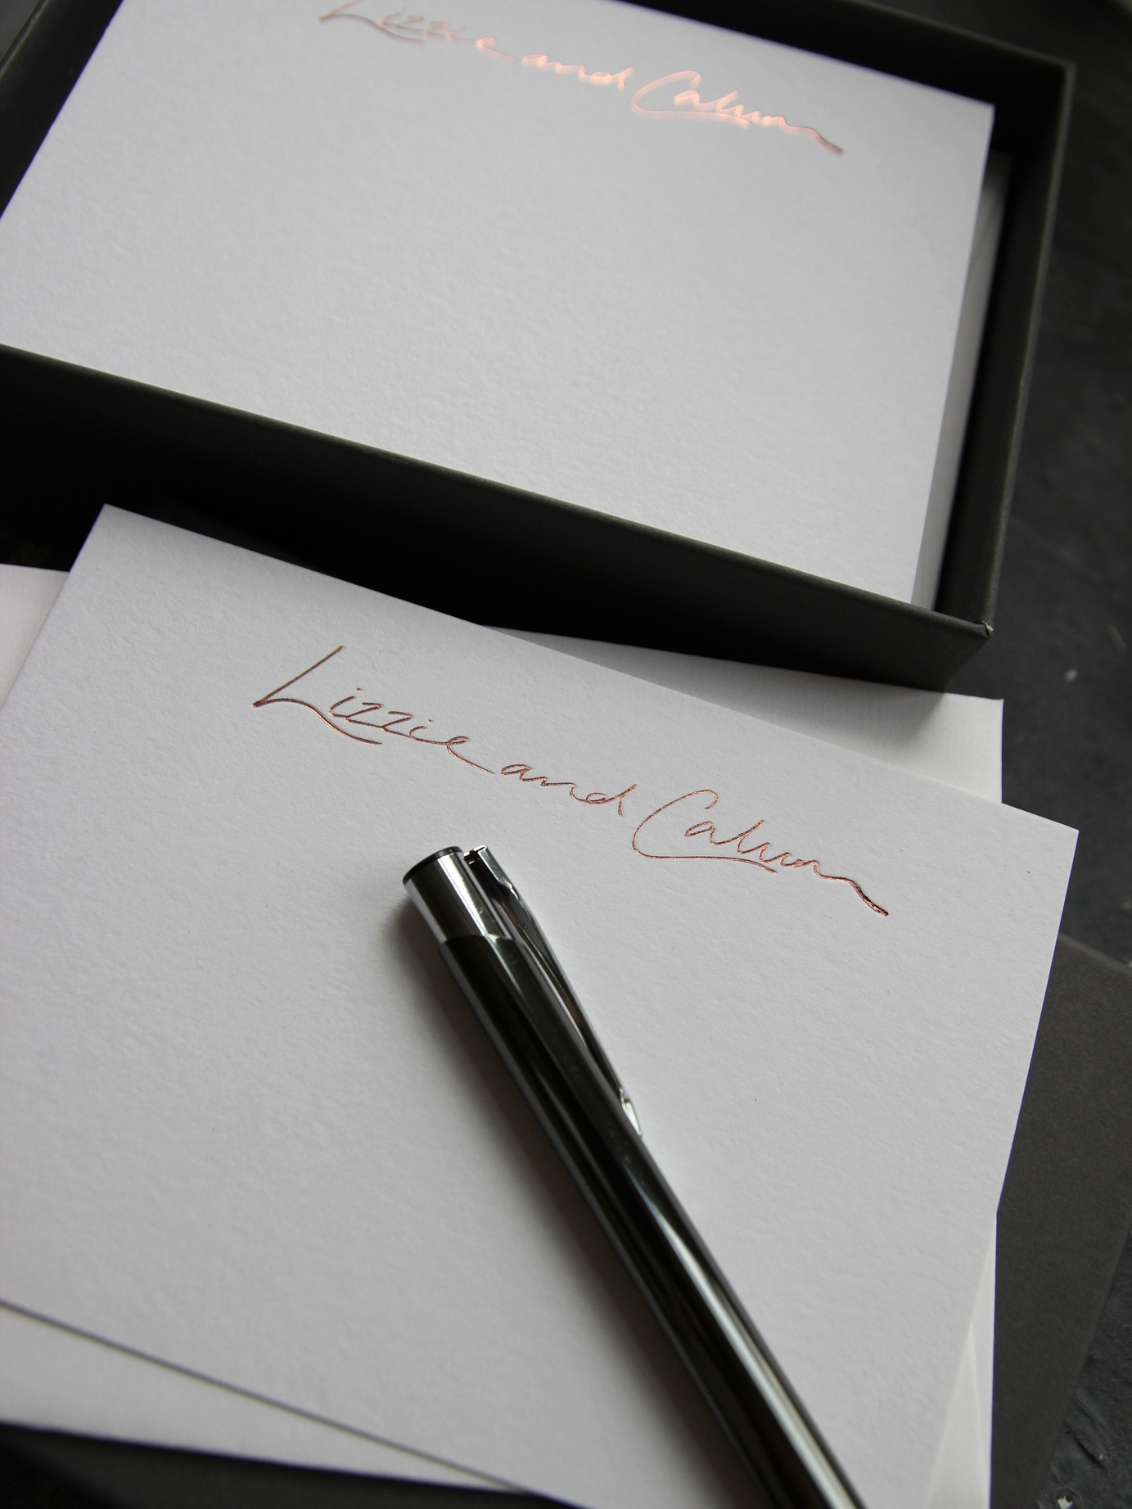 Lizzie and Calum
Lizzie and Calum